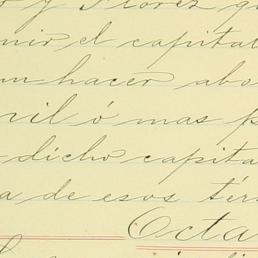 y Florez qu
nir el capital
n hacer abo
ril ó mas p
dicho capita
a de esos tér
Octa